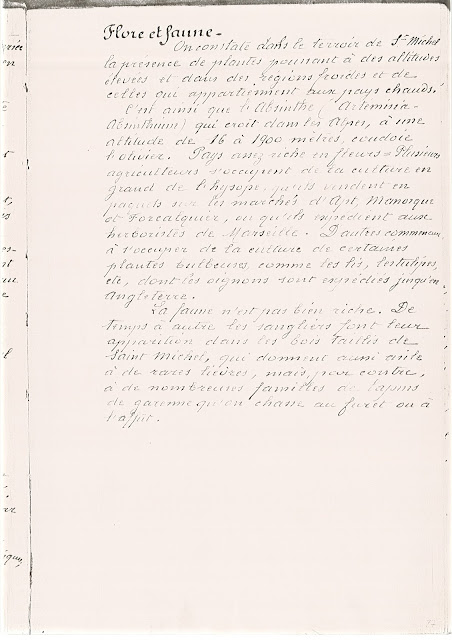 Flore et faune -
On constate dans le terroir de St Michel
la présence de plantes poussant à des altitudes
élevées et dans des régions froides et de
celles qui appartiennent aux pays chauds.
C'est ainsi que l'Absinthe (Artemisia-
Absinthium) qui croit dans les Alpes, à une
altitude de 16 à 1900 mètres, coudoie
l'olivier. Pays assez riche en fleurs = Plusieurs
agriculteurs s'occupent de la culture en
grand de l'hysope, qu'ils vendent en
paquets sur les marchés d'Apt, Manosque
et Forcalquier, ou qu'ils expédient aux
herboristes de Marseille. D'autres commencent
à s'occuper de la culture de certaines
plantes bulbeuses, comme les lis, les tulipes,
etc, dont les oignons sont expédiés jusqu'en
Angleterre.
La faune n'est pas bien riche. De
temps à autre les sangliers font leur
apparition dans les bois taillis de
Saint Michel, qui donnent aussi asile
à de rares lièvres, mais, par contre,
à de nombreuses familles de lapins
de garenne qu'on chasse au furet ou à
l'affût.